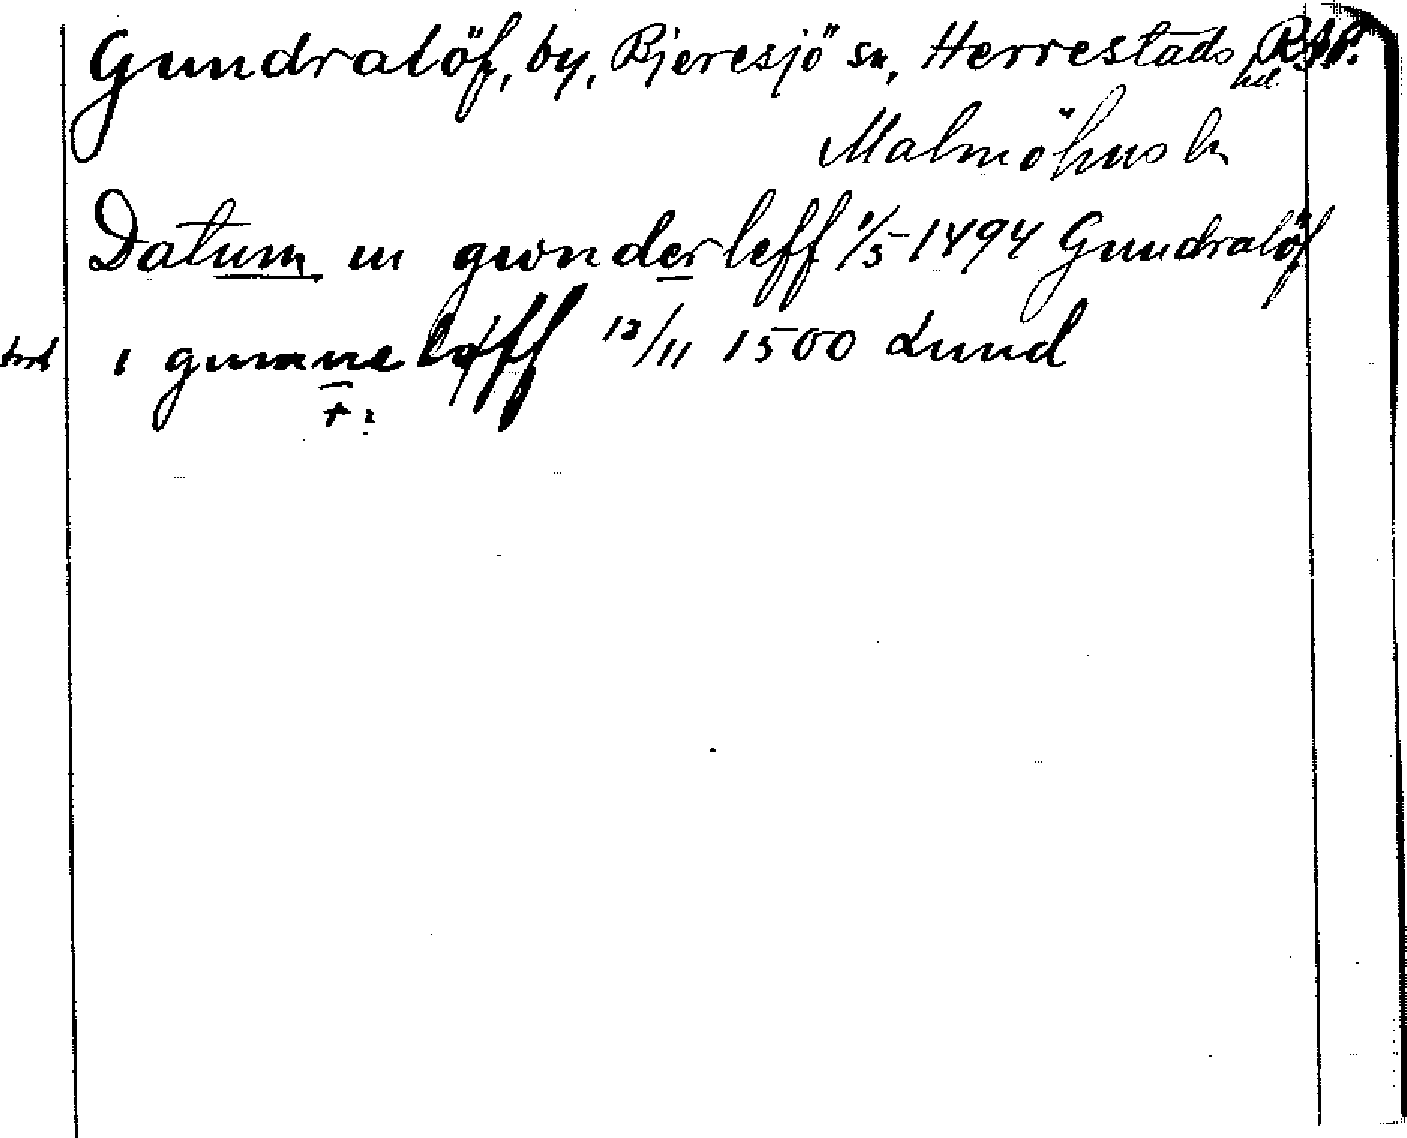 Gundralöf, by, Bjeresjö sn, Herrestads hd.
Malmöhus ln
Datum in gwnderleff 1/5 1494 Gundralöf
i gunneløff 12/11 1500 Lund